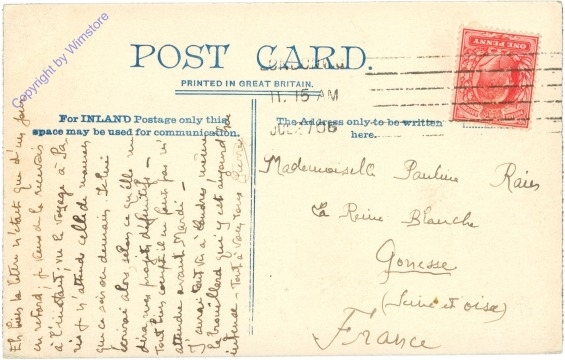 Copyright by Wimstore
POST CARD.
PRINTED IN GREAT BRITAIN.
For INLAND Postage only this
space may be used for communication.
The Address only to be written
here.
ONE PENNY
11. 15 AM
06
Mademoiselle Pauline
La Reine Blanche
Gonesse
(Seine et oise)
France
Eh bien la lettre n'était que d'un jour
en retard; je viens de la recevoir
à l'instant, vu le voyage à
n'attends celle de maman
que ce soir ou demain. Je lui
écrirai alors, selon ce qu'elle me
dira nos projets définitifs —
Tout bien compté il ne faut pas m'
attendre avant Mardi —
J'aurai tout vu à Londres même
le brouillard qui y est aujourd'hui
intense — Tout à vous tous